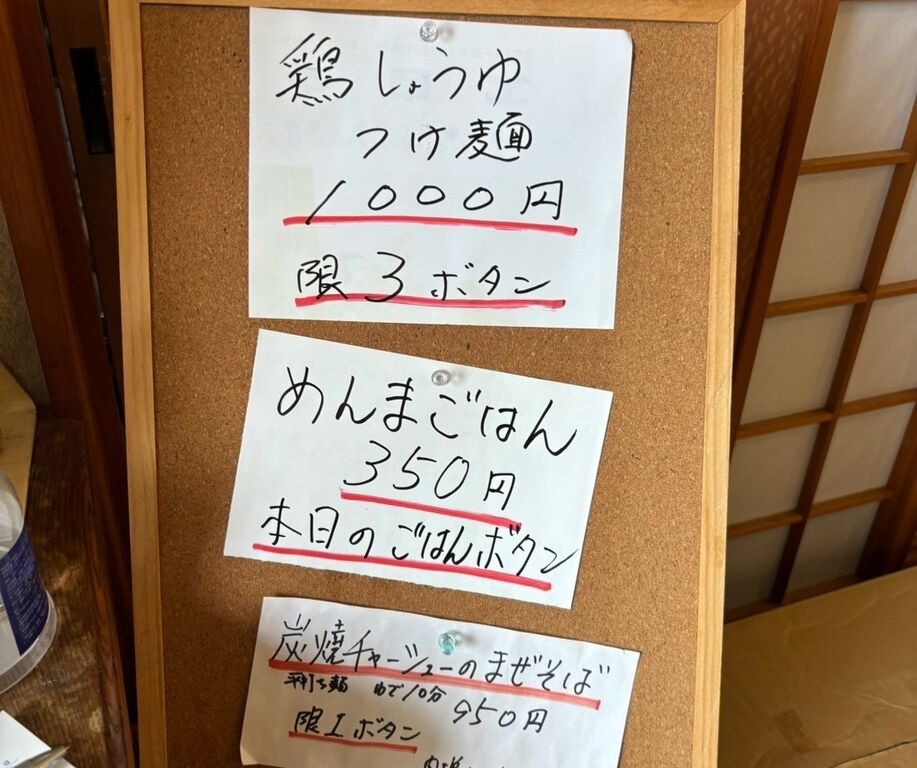 鶏しょうゆ
つけ麺
1000円
限3ボタン
めんまごはん
350円
本日のごはんボタン
炭焼チャーシューのまぜそば
平打ち麺 ゆで10分
950円
限1ボタン